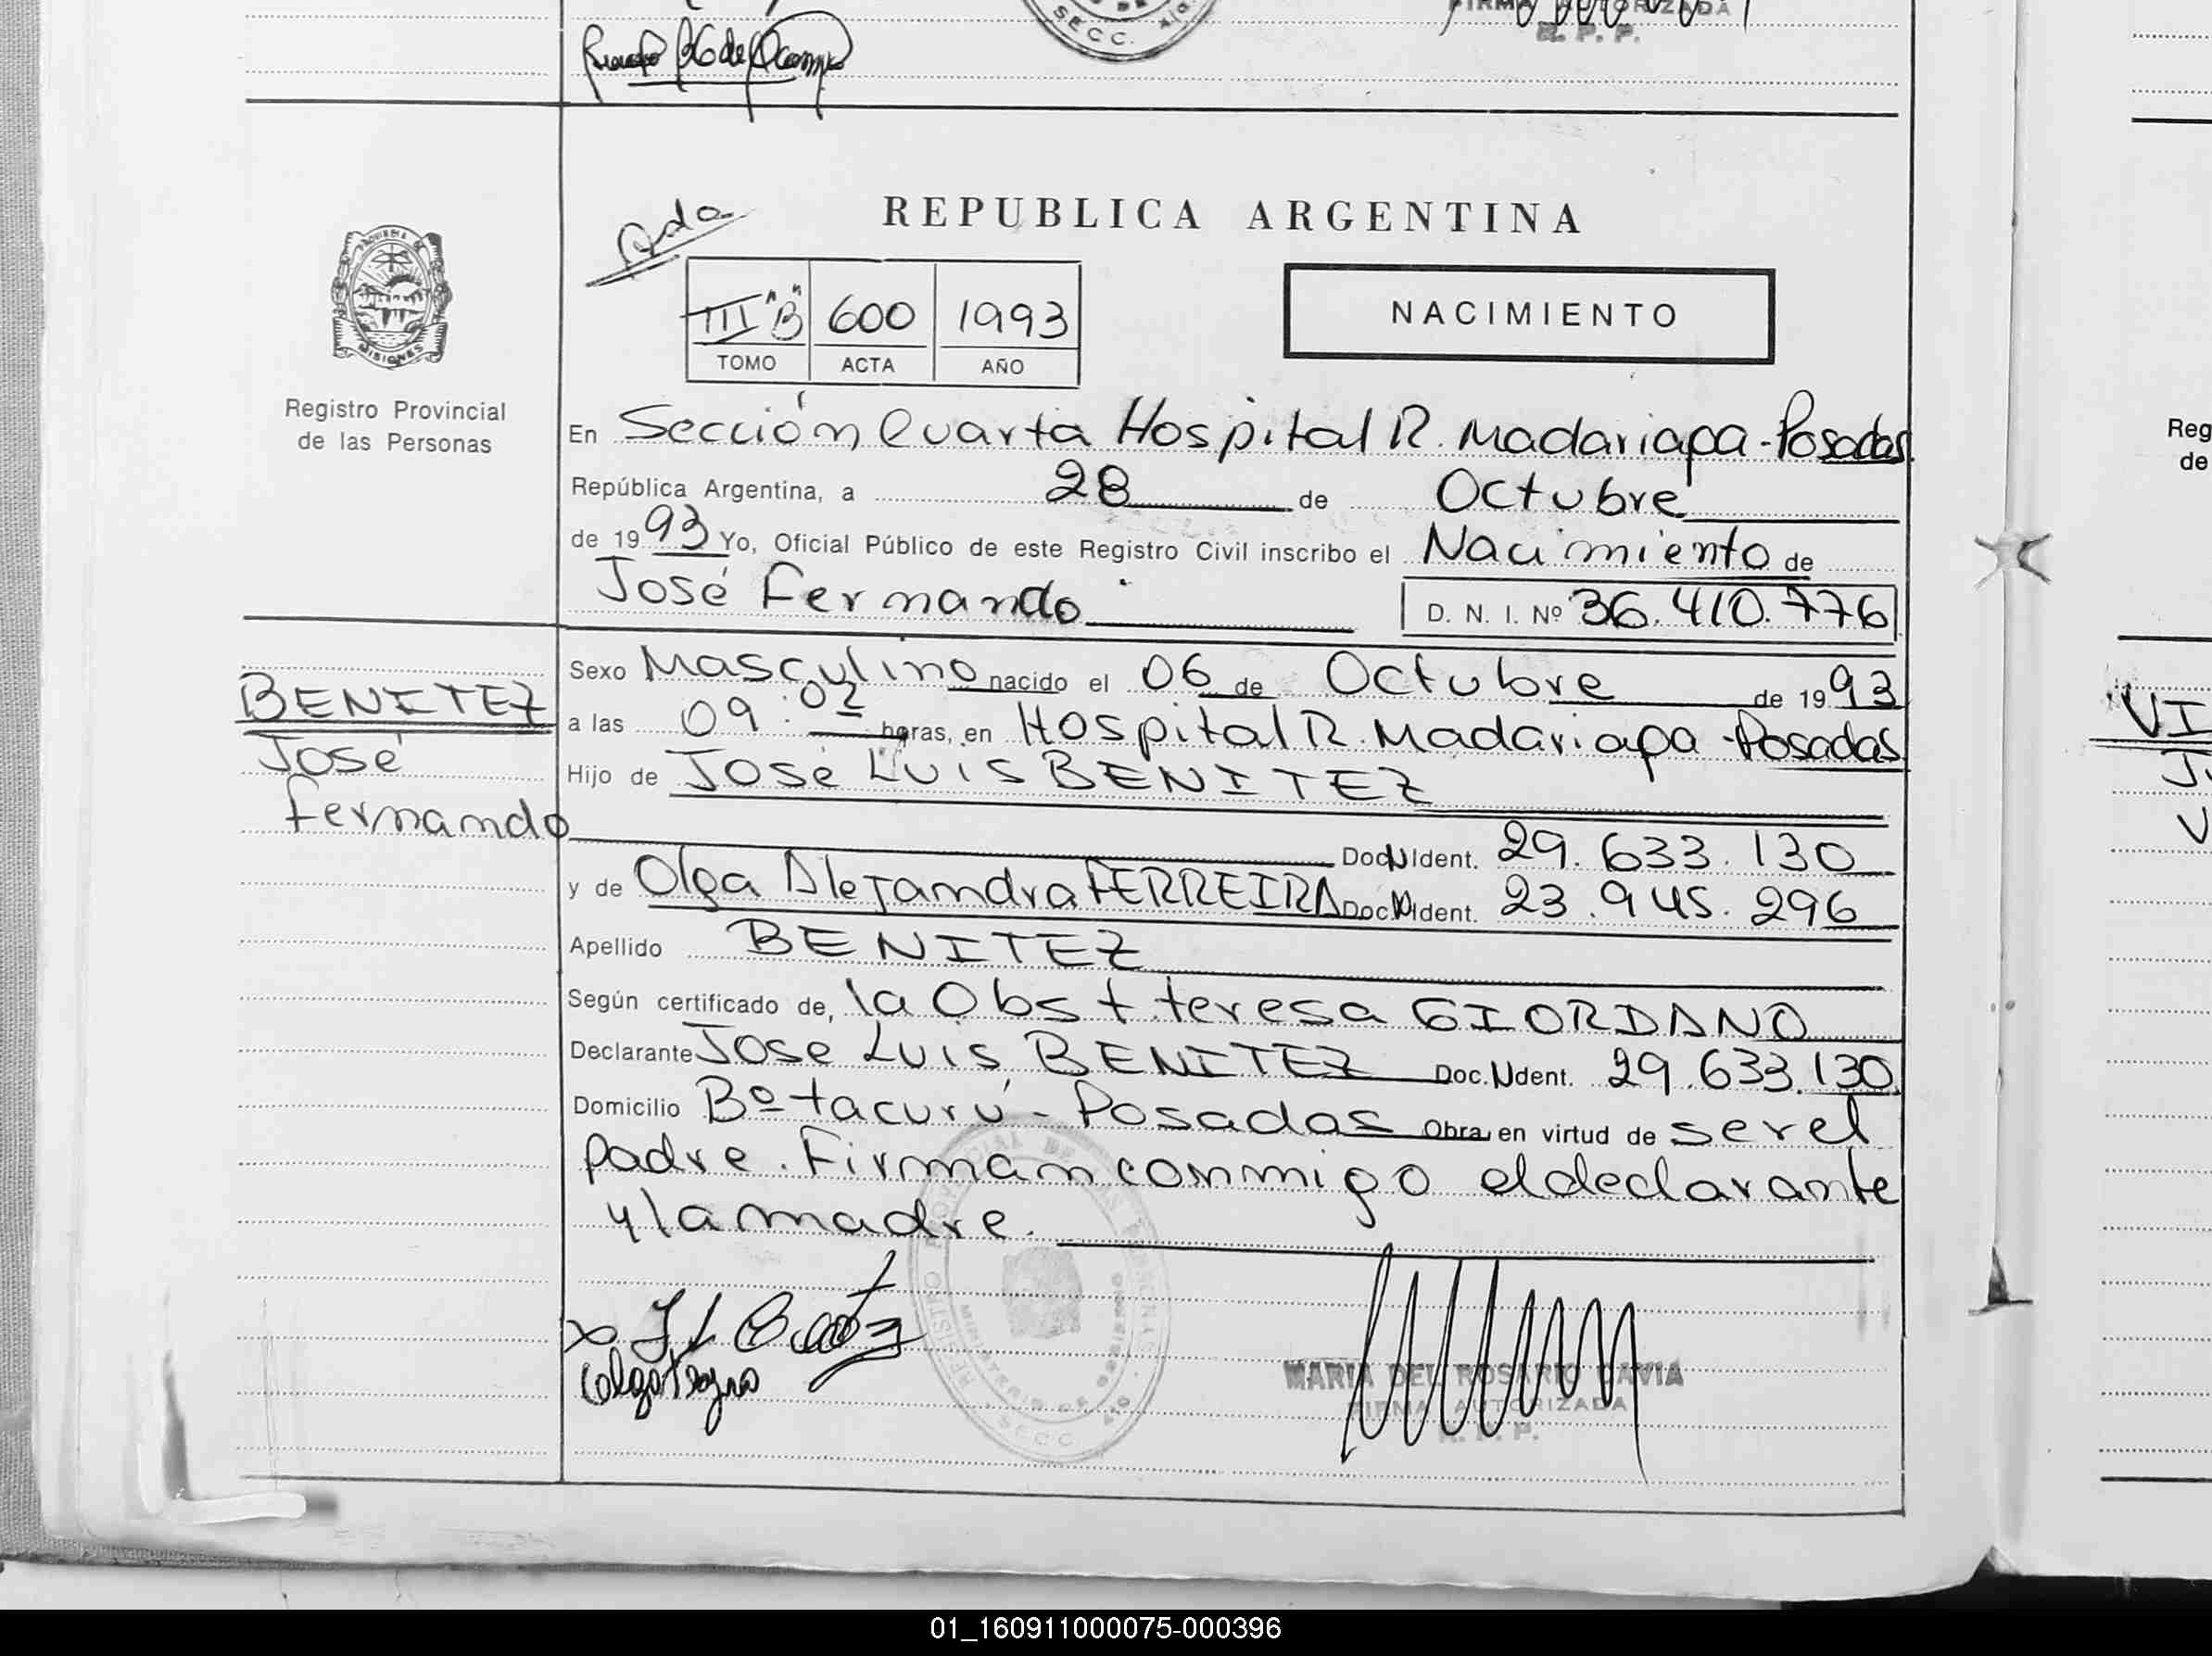 SECC.
FIRMA AUTORIZADA
R. P. P.
REPUBLICA ARGENTINA
III "B" 600 1993
TOMO ACTA AÑO
NACIMIENTO
PROVINCIA DE
MISIONES
Registro Provincial
de las Personas
En Sección Cuarta Hospital R. Madariaga - Posadas.
República Argentina, a 28 de Octubre
de 1993 Yo, Oficial Público de este Registro Civil inscribo el Nacimiento de
José Fernando D. N. I. Nº 36.410.776
BENITEZ
José
Fernando
Sexo Masculino nacido el 06 de Octubre de 1993
a las 09:02 horas, en Hospital R. Madariaga - Posadas
Hijo de José Luis BENITEZ
Doc N Ident. 29.633.130
y de Olga Alejandra FERREIRA Doc. N Ident. 23.945.296
Apellido BENITEZ
Según certificado de, la Obst teresa GIORDANO
Declarante Jose Luis BENITEZ Doc. N dent. 29.633.130
Domicilio Bº tacurú - Posadas Obra en virtud de ser el
padre. Firman conmigo el declarante
y la madre.
MARIA DEL ROSARIO CAVIA
FIRMA AUTORIZADA
R. P. P.
SECC.
Reg
de
VI
01_160911000075-000396